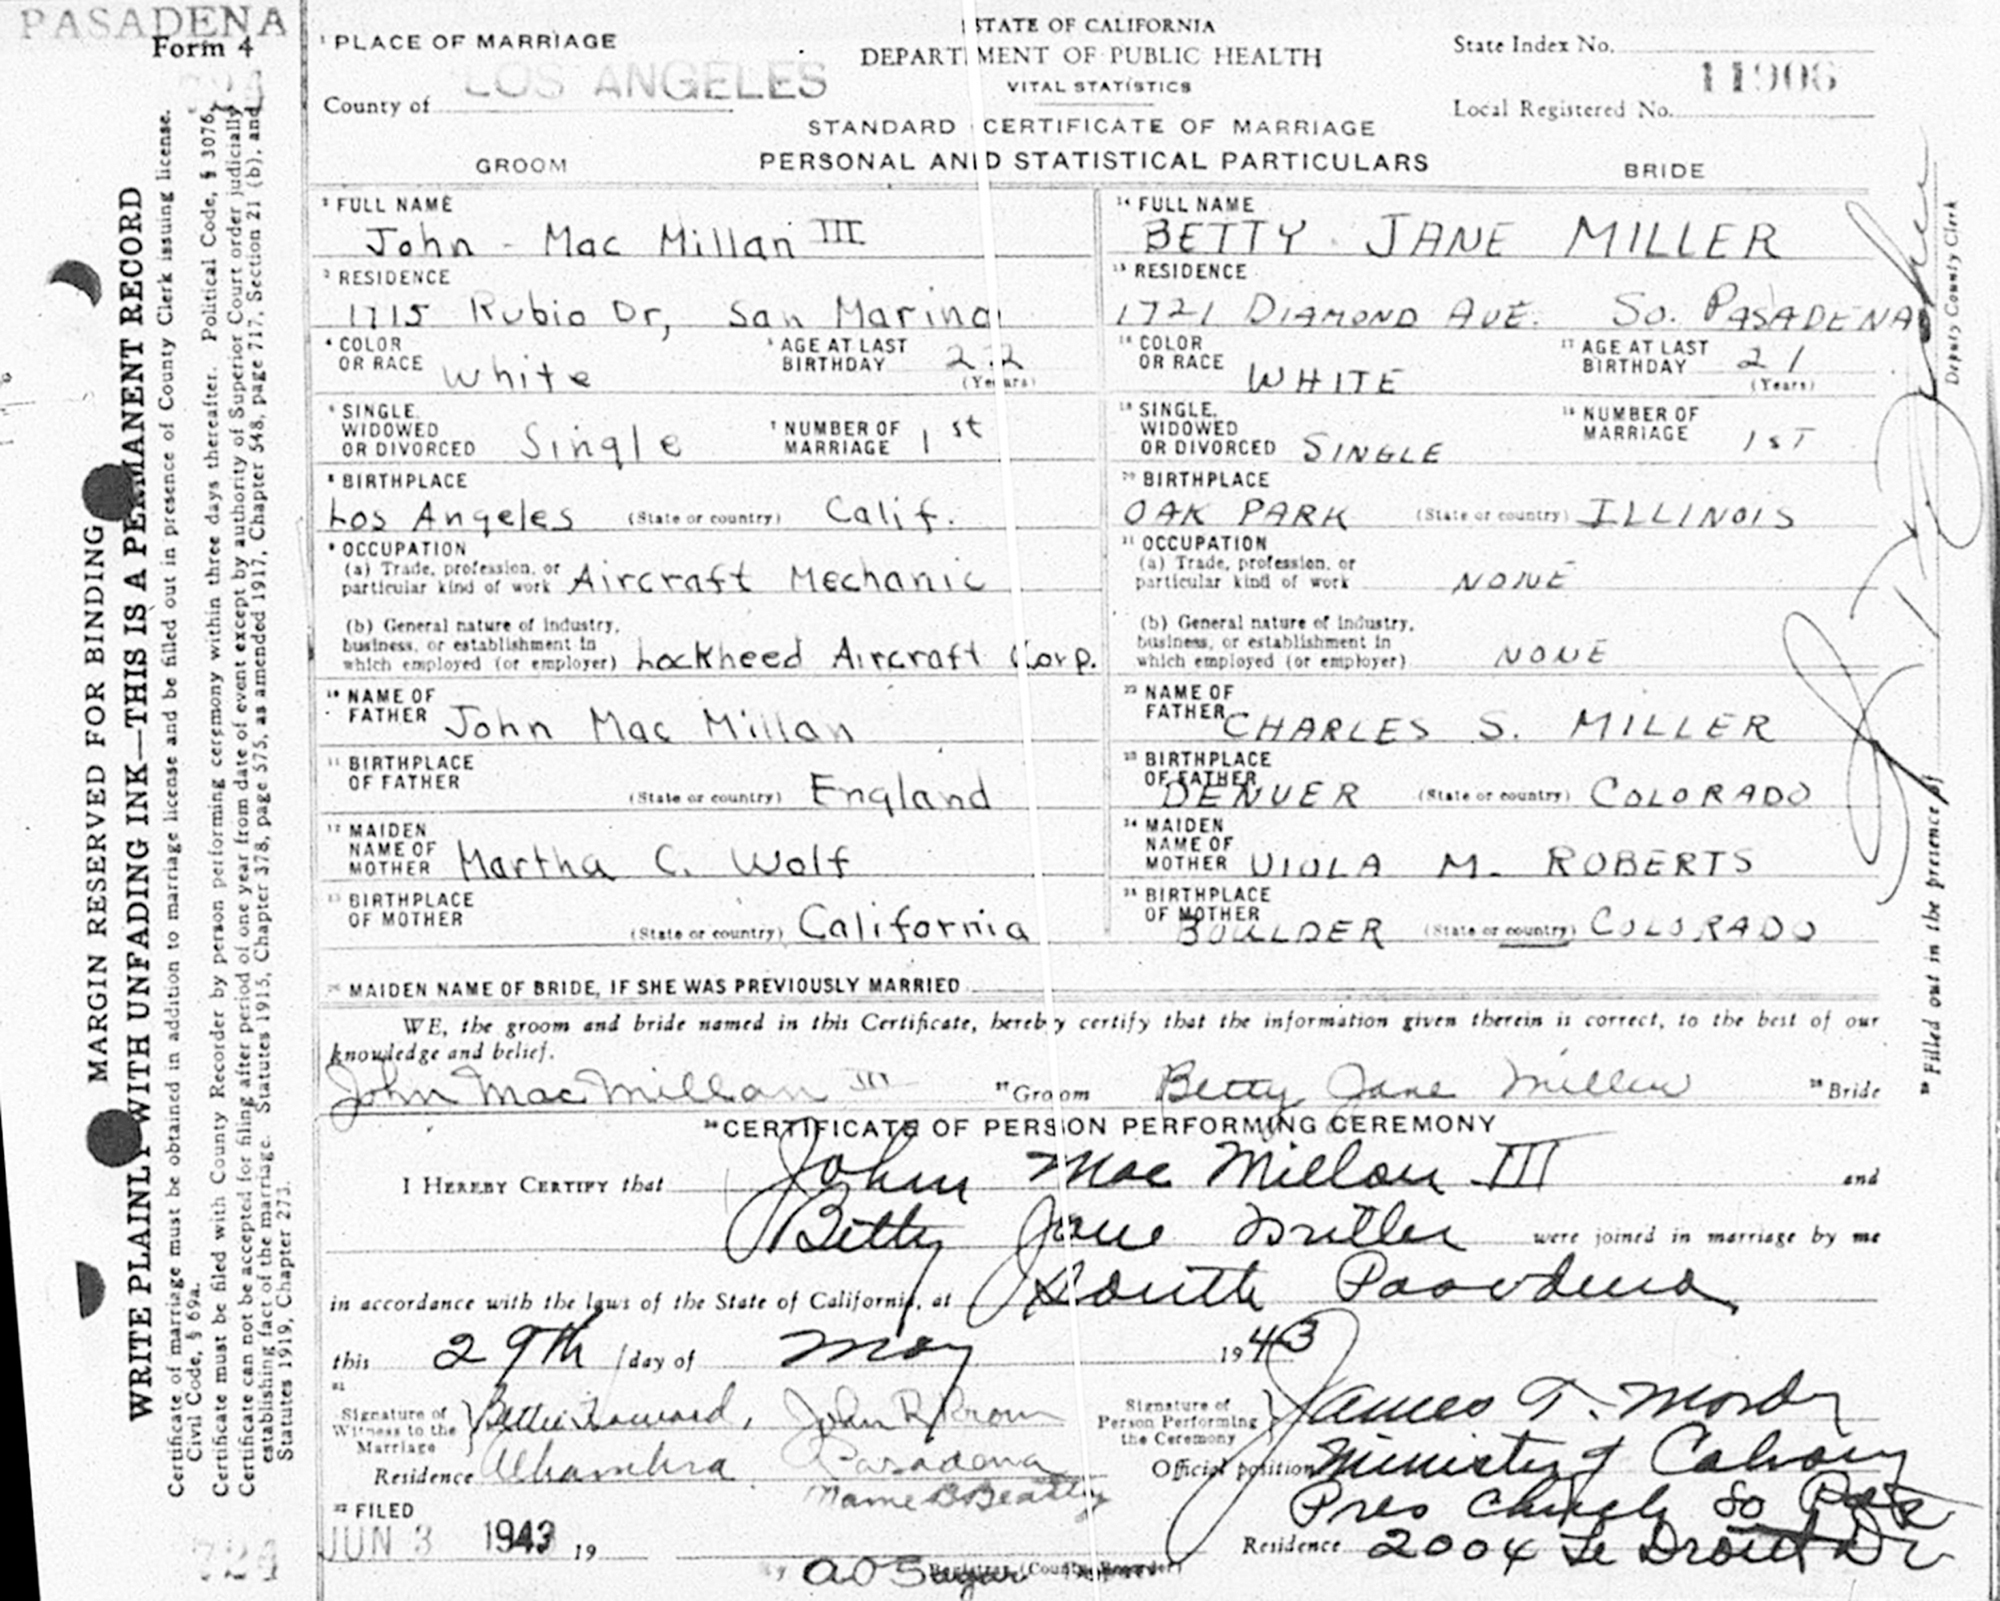 PASADENA
Form 4
1 PLACE OF MARRIAGE
County of LOS ANGELES
STATE OF CALIFORNIA
DEPARTMENT OF PUBLIC HEALTH
VITAL STATISTICS
STANDARD CERTIFICATE OF MARRIAGE
State Index No.
11906
Local Registered No.
GROOM
PERSONAL AND STATISTICAL PARTICULARS
BRIDE
2 FULL NAME
John - Mac Millan III
3 RESIDENCE
1715 Rubio Dr, San Marino
4 COLOR OR RACE White
5 AGE AT LAST BIRTHDAY 22 (Years)
6 SINGLE, WIDOWED OR DIVORCED Single
7 NUMBER OF MARRIAGE 1st
8 BIRTHPLACE
Los Angeles (State or country) Calif.
9 OCCUPATION
(a) Trade, profession, or
particular kind of work Aircraft Mechanic
(b) General nature of industry,
business, or establishment in
which employed (or employer) Lockheed Aircraft Corp.
10 NAME OF FATHER John Mac Millan
11 BIRTHPLACE OF FATHER
(State or country) England
12 MAIDEN NAME OF MOTHER Martha C. Wolf
13 BIRTHPLACE OF MOTHER
(State or country) California
14 FULL NAME
BETTY JANE MILLER
15 RESIDENCE
1721 DIAMOND AVE. SO. PASADENA
16 COLOR OR RACE WHITE
17 AGE AT LAST BIRTHDAY 21 (Years)
18 SINGLE, WIDOWED OR DIVORCED SINGLE
19 NUMBER OF MARRIAGE 1ST
20 BIRTHPLACE
OAK PARK (State or country) ILLINOIS
21 OCCUPATION
(a) Trade, profession, or
particular kind of work NONE
(b) General nature of industry,
business, or establishment in
which employed (or employer) NONE
22 NAME OF FATHER CHARLES S. MILLER
23 BIRTHPLACE OF FATHER
DENVER (State or country) COLORADO
24 MAIDEN NAME OF MOTHER VIOLA M. ROBERTS
25 BIRTHPLACE OF MOTHER
BOULDER (State or country) COLORADO
26 MAIDEN NAME OF BRIDE, IF SHE WAS PREVIOUSLY MARRIED
WE, the groom and bride named in this Certificate, hereby certify that the information given therein is correct, to the best of our
knowledge and belief.
John MacMillan III 27 Groom Betty Jane Miller 28 Bride
30 CERTIFICATE OF PERSON PERFORMING CEREMONY
I HEREBY CERTIFY that John Mac Millan III and
Betty Jane Miller were joined in marriage by me
in accordance with the laws of the State of California, at South Pasadena
this 29th day of May 1943
31
Signature of Witness to the Marriage Bettie Howard, John R Krom
Residence Alhambra Pasadena
Mame B Beatty
Signature of Person Performing the Ceremony James T. Mordy
Official position Minister of Calvary
Pres Church So Pas
Residence 2004 Le Droit Dr
32 FILED
JUN 3 1943 19
Registrar (County Recorder)
724
MARGIN RESERVED FOR BINDING
WRITE PLAINLY WITH UNFADING INK—THIS IS A PERMANENT RECORD
Certificate of marriage must be obtained in addition to marriage license and be filled out in presence of County Clerk issuing license.
Civil Code, § 69a.
Certificate must be filed with County Recorder by person performing ceremony within three days thereafter. Political Code, § 3076.
Certificate can not be accepted for filing after period of one year from date of event except by authority of Superior Court order judicially
establishing fact of the marriage. Statutes 1915, Chapter 378, page 575, as amended 1917, Chapter 548, page 717, Section 21 (b), and
Statutes 1919, Chapter 273.
29 Filled out in the presence of
Deputy County Clerk